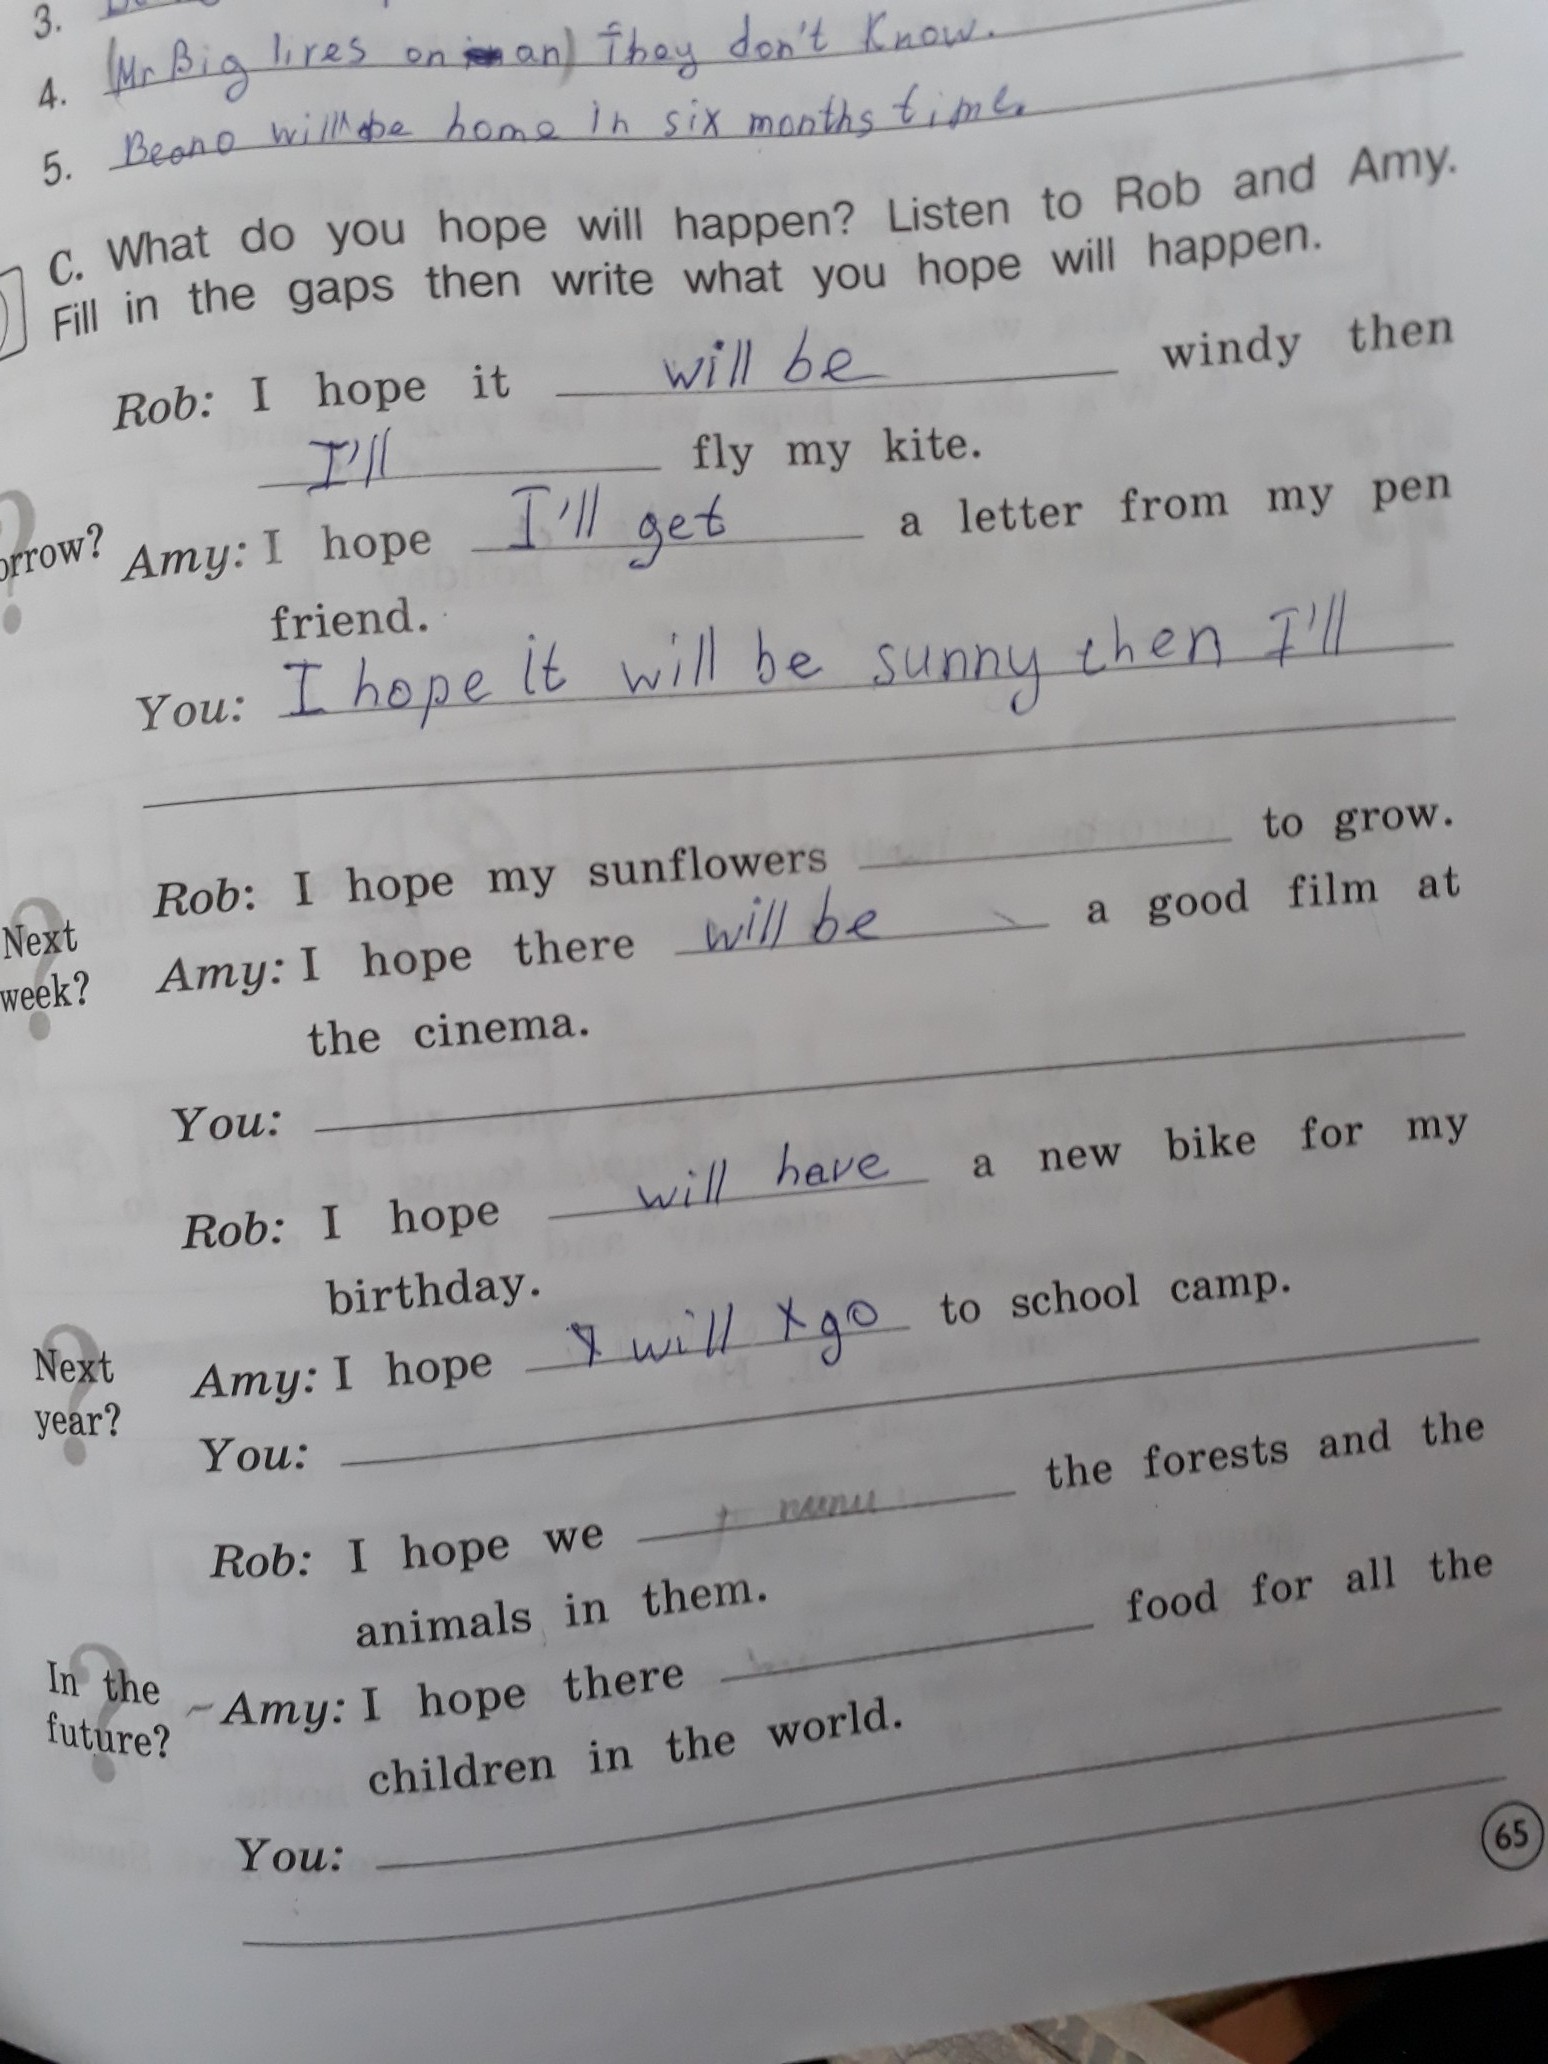 3.
4. (Mr Big lives on an) They don't know.
5. Beano will be home in six months time.
C. What do you hope will happen? Listen to Rob and Amy.
Fill in the gaps then write what you hope will happen.
Rob: I hope it will be windy then
I'll fly my kite.
orrow? Amy: I hope I'll get a letter from my pen
friend.
You: I hope it will be sunny then I'll
Rob: I hope my sunflowers to grow.
Next week? Amy: I hope there will be a good film at
the cinema.
You:
Rob: I hope will have a new bike for my
birthday.
Next year? Amy: I hope I will go to school camp.
You:
Rob: I hope we the forests and the
animals in them.
In the future? Amy: I hope there food for all the
children in the world.
You:
65